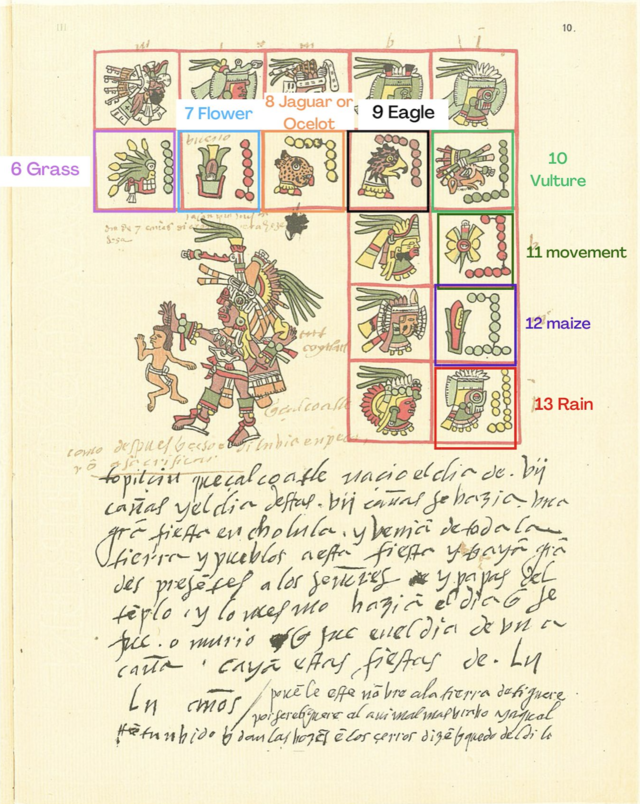 10.
7 Flower
8 Jaguar or
Ocelot
9 Eagle
6 Grass
10
Vulture
11 movement
12 maize
13 Rain
topilcin queçalcoatle nacio el dia de . vij
cañas y el dia destas . vij cañas se hazia . una
grã fiesta en cholula . y veniã de toda la
tierra y pueblos a esta fiesta y trayã grã
des presẽtes a los señores y papas del
tẽplo . y lo mesmo haziã el dia q̃ se
fue . o murio q̃ fue en el dia de vn a
caña . cayã estas fiestas de . Ln
Ln años / ponẽle este nõbre a la tierra de tiguere
por ser el tiguere el animal mas bravo
q̃ dan las bozes ẽ los çerros dizẽ q̃ quedo del